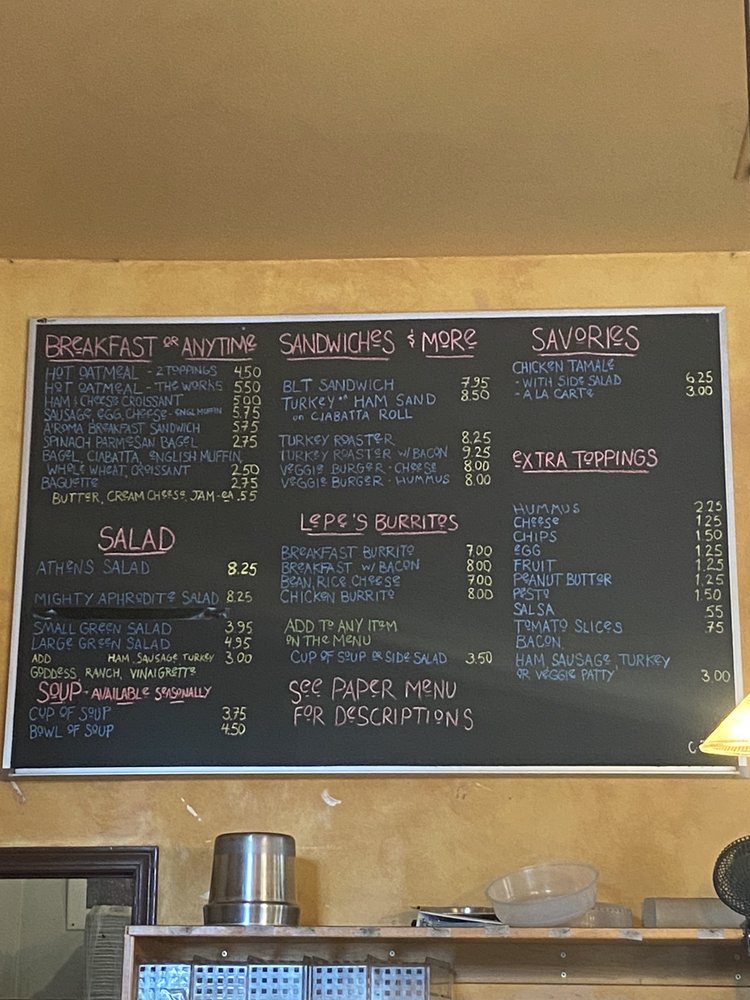 BREAKFAST OR ANYTIME
HOT OATMEAL - 2 TOPPINGS 4.50
HOT OATMEAL - THE WORKS 5.50
HAM & CHEESE CROISSANT 5.00
SAUSAGE, EGG, CHEESE - ENGL MUFFIN 5.75
A'ROMA BREAKFAST SANDWICH 5.75
SPINACH PARMESAN BAGEL 2.75
BAGEL, CIABATTA, ENGLISH MUFFIN,
WHOLE WHEAT, CROISSANT 2.50
BAGUETTE 2.75
BUTTER, CREAM CHEESE, JAM - EA .55
SALAD
ATHENS SALAD 8.25
MIGHTY APHRODITE SALAD 8.25
SMALL GREEN SALAD 3.95
LARGE GREEN SALAD 4.95
ADD HAM, SAUSAGE, TURKEY 3.00
GODDESS, RANCH, VINAIGRETTE
SOUP - AVAILABLE SEASONALLY
CUP OF SOUP 3.75
BOWL OF SOUP 4.50
SANDWICHES & MORE
BLT SANDWICH 7.95
TURKEY OR HAM SAND 8.50
ON CIABATTA ROLL
TURKEY ROASTER 8.25
TURKEY ROASTER W/ BACON 9.25
VEGGIE BURGER - CHEESE 8.00
VEGGIE BURGER - HUMMUS 8.00
LEPE'S BURRITOS
BREAKFAST BURRITO 7.00
BREAKFAST W/ BACON 8.00
BEAN, RICE CHEESE 7.00
CHICKEN BURRITO 8.00
ADD TO ANY ITEM
ON THE MENU
CUP OF SOUP OR SIDE SALAD 3.50
SEE PAPER MENU
FOR DESCRIPTIONS
SAVORIES
CHICKEN TAMALE
- WITH SIDE SALAD 6.25
- A LA CARTE 3.00
EXTRA TOPPINGS
HUMMUS 2.25
CHEESE 1.25
CHIPS 1.50
EGG 1.25
FRUIT 1.25
PEANUT BUTTER 1.25
PESTO 1.50
SALSA .55
TOMATO SLICES .75
BACON
HAM, SAUSAGE, TURKEY
OR VEGGIE PATTY 3.00